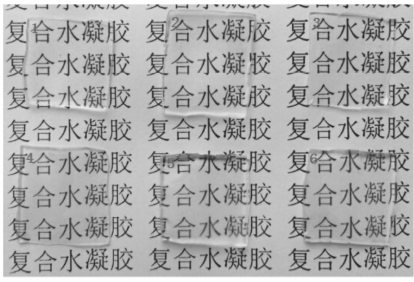 复合水凝胶 复合水凝胶 复合水凝胶
1 2 3
复合水凝胶 复合水凝胶 复合水凝胶
复合水凝胶 复合水凝胶 复合水凝胶
复合水凝胶 复合水凝胶 复合水凝胶
复合水凝胶 复合水凝胶 复合水凝胶
4 5 6
复合水凝胶 复合水凝胶 复合水凝胶
复合水凝胶 复合水凝胶 复合水凝胶
复合水凝胶 复合水凝胶 复合水凝胶